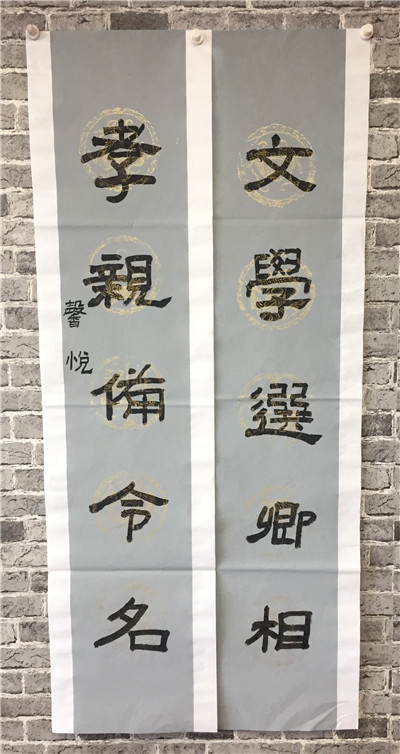 文學選卿相
孝親備令名
馨悅